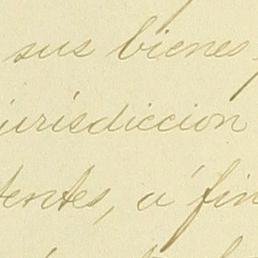 sus bienes
jurisdiccion
tentes, á fin